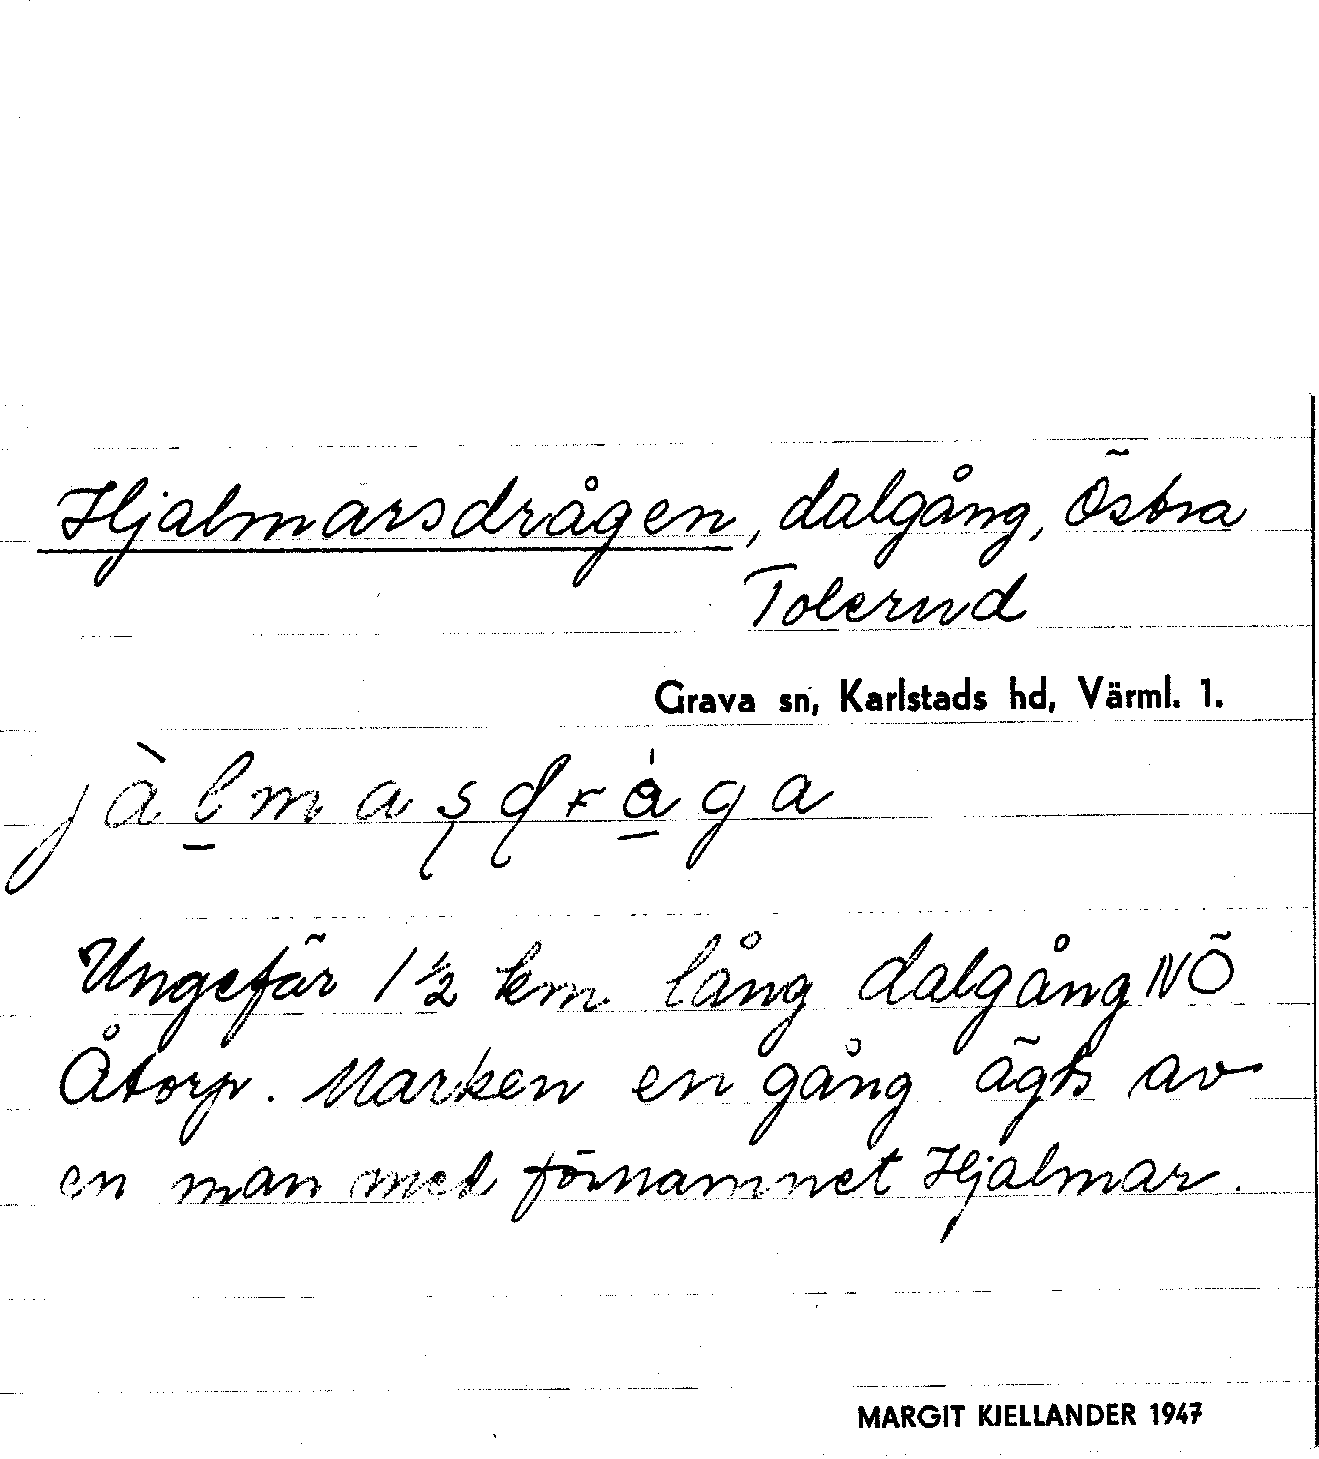 Hjalmarsdrågen, dalgång, Östra
Tolerud
Grava sn, Karlstads hd, Värml. 1.
jàl̲maşɖrǻ̲ga
Ungefär 1½ km lång dalgång NÖ
Åtorp. Marken en gång ägts av
en man med förnamnet Hjalmar.
MARGIT KJELLANDER 1947